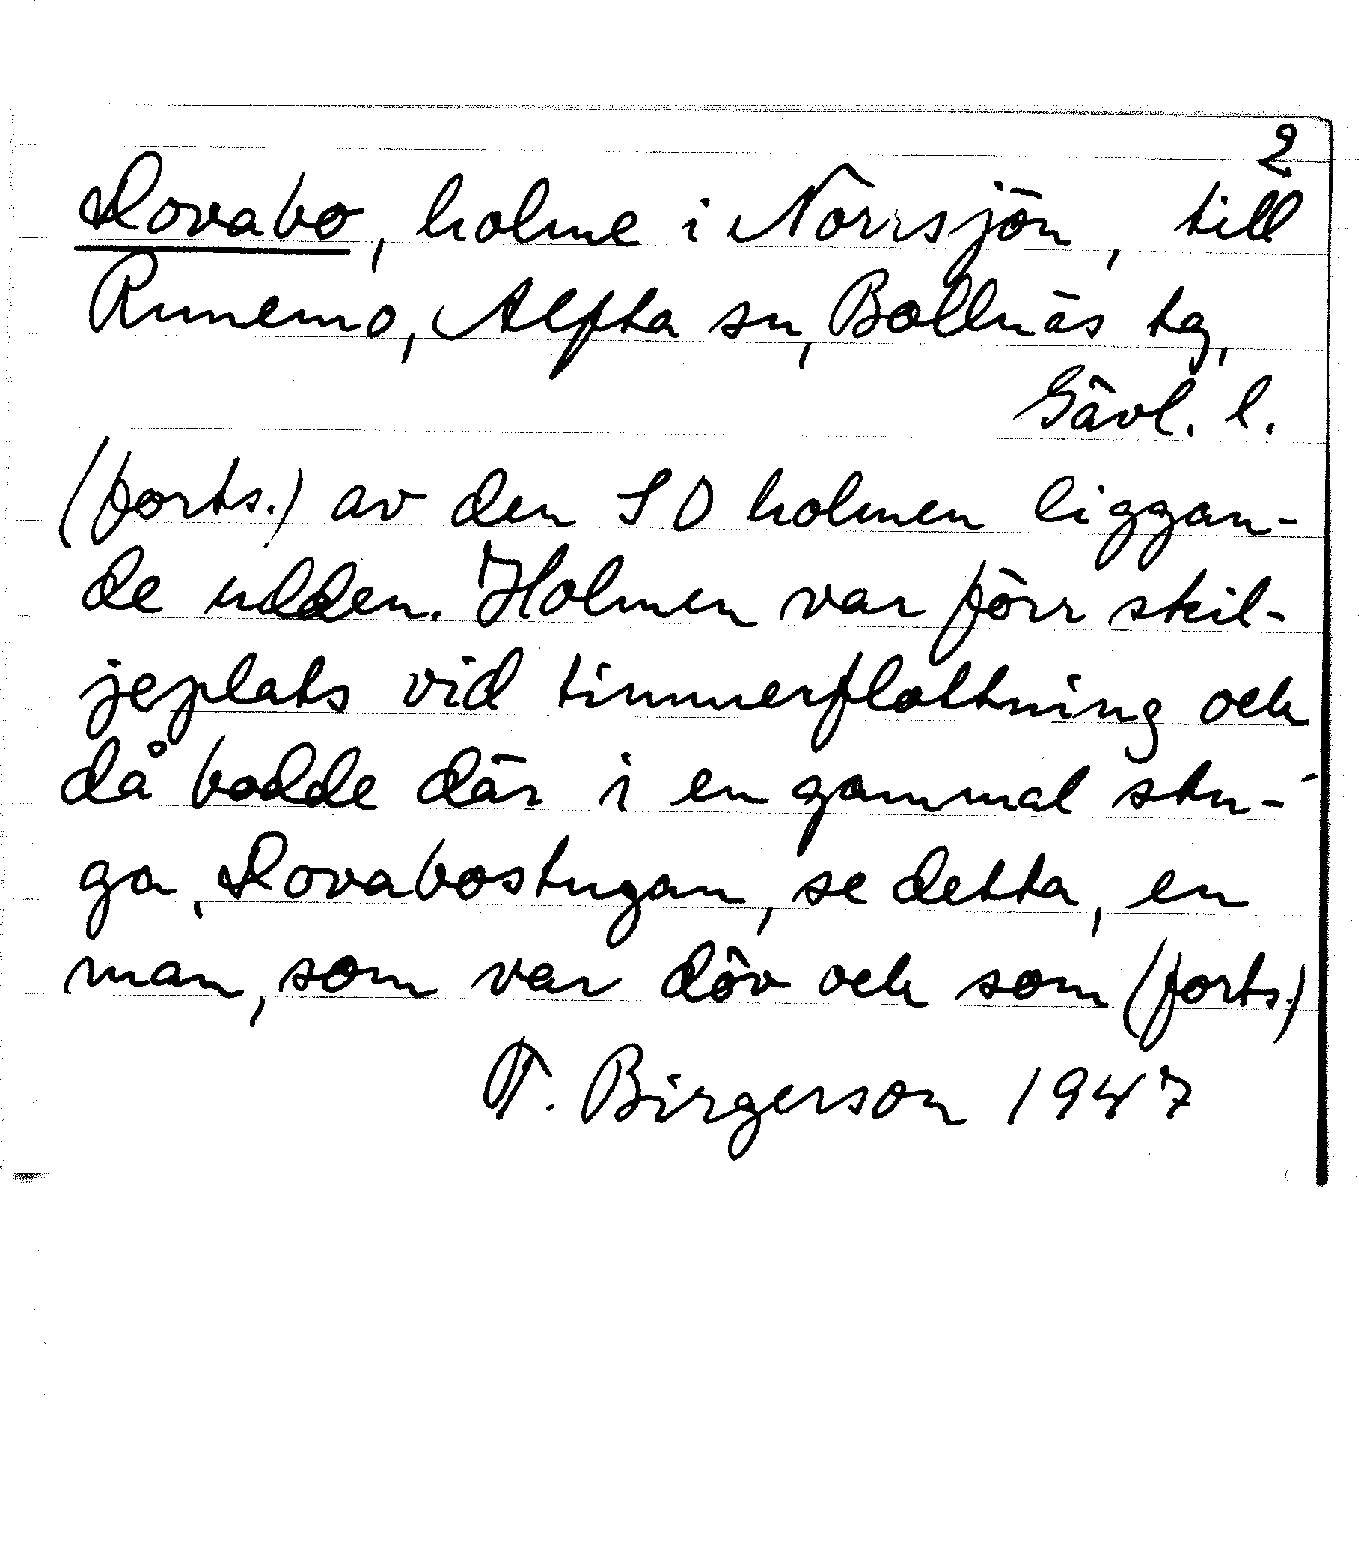 2
Dovabo, holme i Norrsjön, till
Runemo, Alfta sn, Bollnäs tg,
Gävl. l.
(forts.) av den SO holmen liggan-
de udden. Holmen var förr skil-
jeplats vid timmerflottning och
då bodde där i en gammal stu-
ga, Dovabostugan, se detta, en
man, som var döv och som (forts.)
T. Birgerson 1947